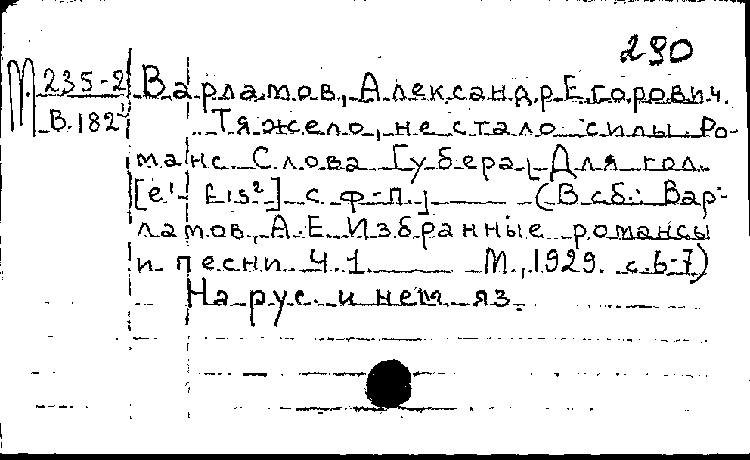 290
М 235-2 Варламов, Александр Егорович.
В.182 Тяжело, не стало силы. Ро-
манс Слова Губера [Для гол.
[e¹- fis²] с ф-п.] (В сб.: Вар-
ламов, А.Е. Избранные романсы
и песни Ч.1 М., 1929. с.6-7)
На рус. и нем яз.